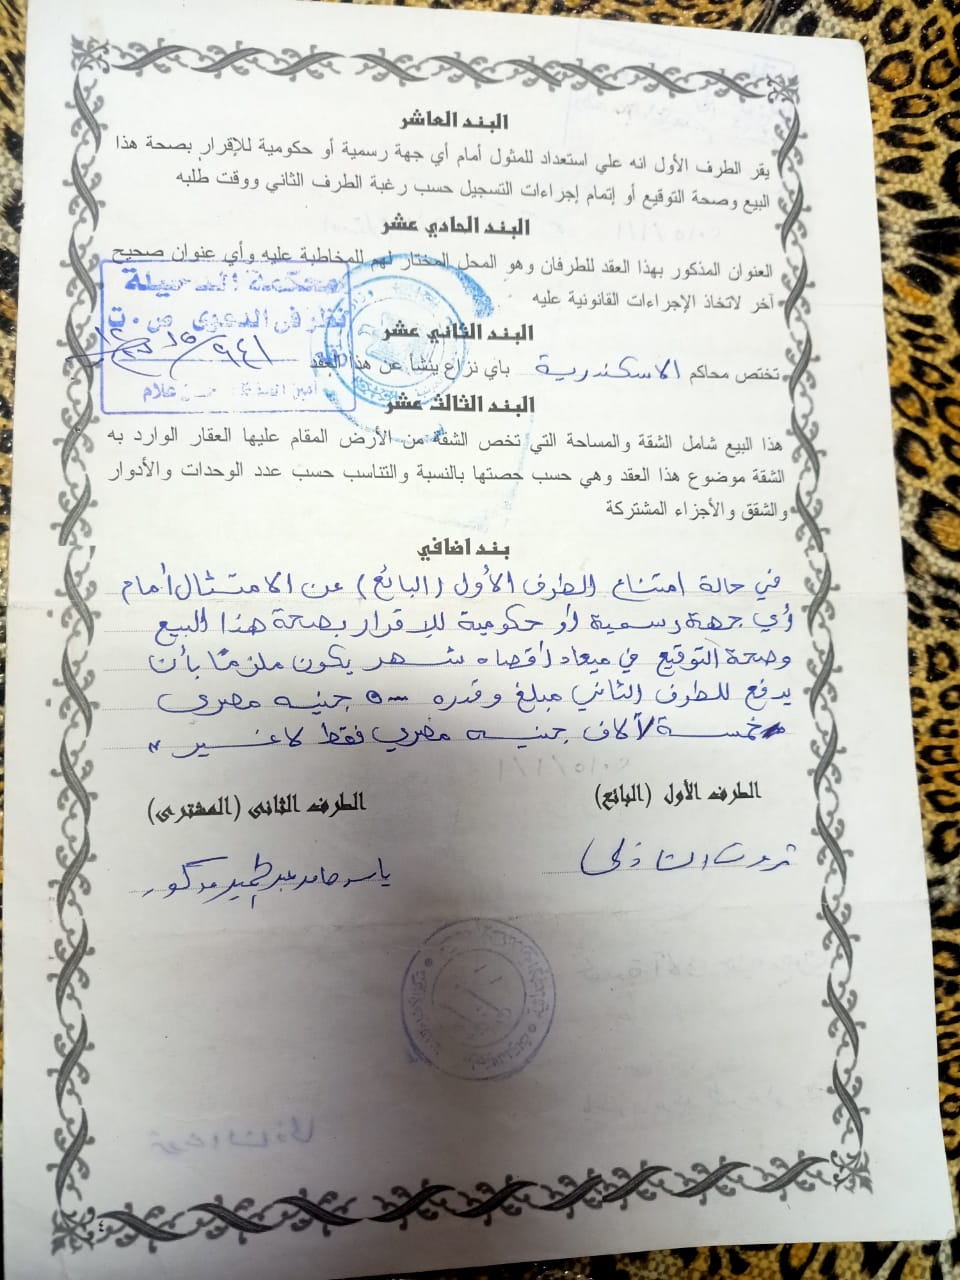 البند العاشر
يقر الطرف الأول انه علي استعداد للمثول أمام أي جهة رسمية أو حكومية للإقرار بصحة هذا
البيع وصحة التوقيع أو إتمام إجراءات التسجيل حسب رغبة الطرف الثاني ووقت طلبه
البند الحادي عشر
العنوان المذكور بهذا العقد للطرفان وهو المحل المختار لهم للمخاطبة عليه وأي عنوان صحيح
آخر لاتخاذ الإجراءات القانونية عليه
محكمة الدخيلة
نظر في الدعوى ص.ت
البند الثاني عشر
تختص محاكم الاسكندرية بأي نزاع ينشأ عن هذا العقد
البند الثالث عشر
هذا البيع شامل الشقة والمساحة التي تخص الشقة من الأرض المقام عليها العقار الوارد به
الشقة موضوع هذا العقد وهي حسب حصتها بالنسبة والتناسب حسب عدد الوحدات والأدوار
والشقق والأجزاء المشتركة
بند اضافي
في حالة امتناع الطرف الأول (البائع) عن الامتثال أمام
أي جهة رسمية أو حكومية للإقرار بصحة هذا البيع
وصحة التوقيع في ميعاد أقصاه شهر يكون ملزمًا بأن
يدفع للطرف الثاني مبلغ وقدره ٥٠٠٠ جنيه مصرى
خمسة آلاف جنيه مصري فقط لا غير "
الطرف الأول (البائع)
الطرف الثانى (المشترى)
ثروت الشاذلى
ياسر حامد عبد الحميد مدكور
٤